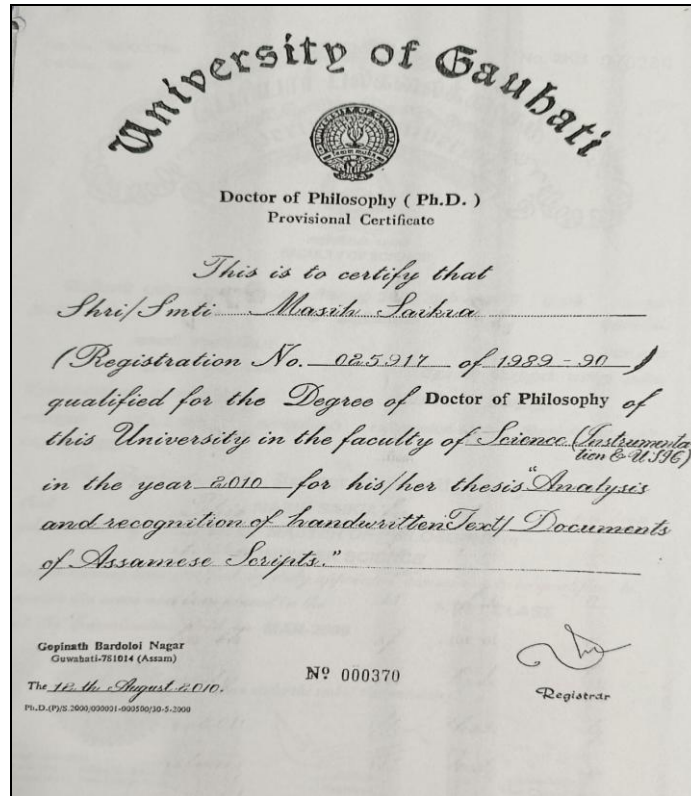 University of Gauhati
Doctor of Philosophy ( Ph.D. )
Provisional Certificate
This is to certify that
Shri/Smti Masih Saikia
(Registration No. 025917 of 1989-90)
qualified for the Degree of Doctor of Philosophy of
this University in the faculty of Science (Instrumenta
tion & USIC)
in the year 2010 for his/her thesis "Analysis
and recognition of handwritten Text/ Documents
of Assamese Scripts."
Gopinath Bardoloi Nagar
Guwahati-781014 (Assam)
Nº 000370
The 12th August 2010.
Registrar
Ph.D.(P)/S.2000/000001-000500/30-5-2000